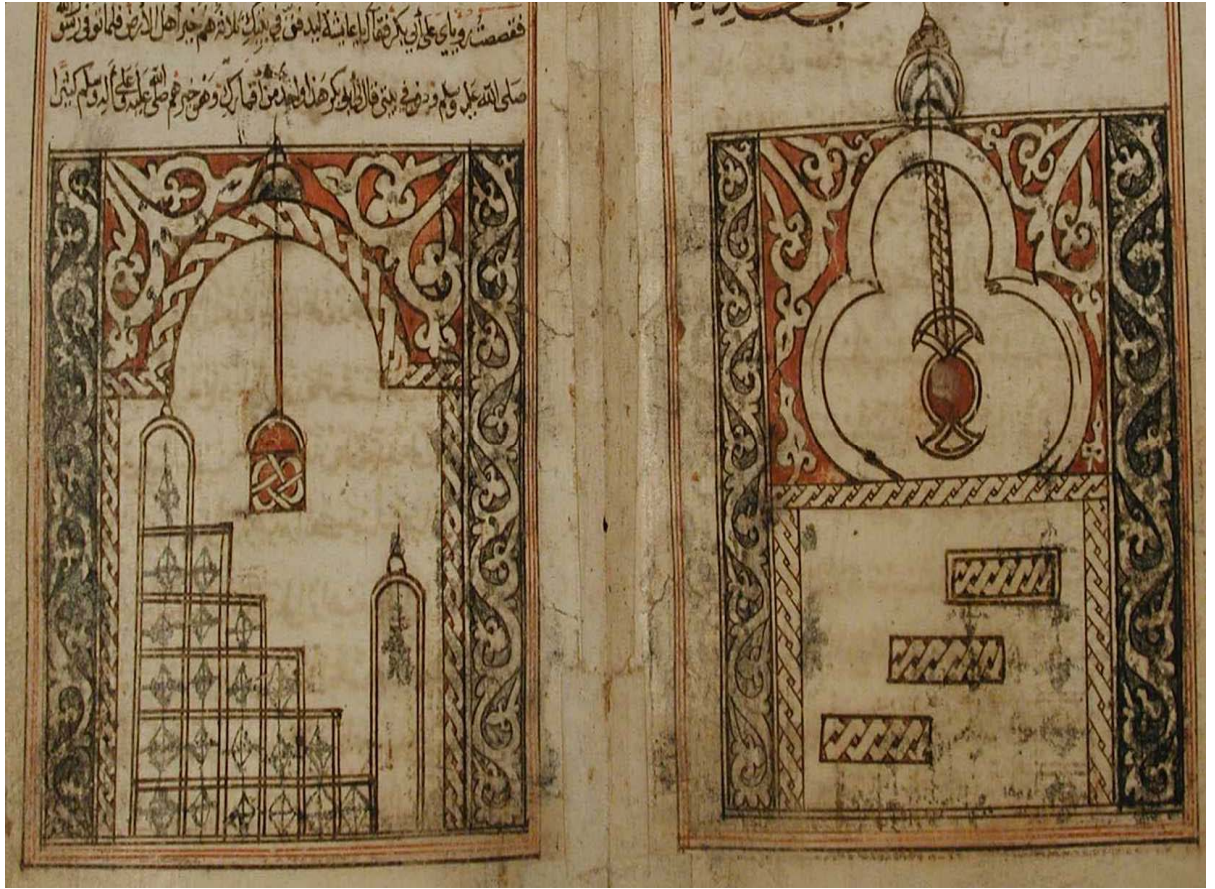 فقصصت رؤياي على أبي بكر فقال يا عائشة ليدفنن في بيتك ثلاثة هم خير أهل الأرض فلما توفي رسول الله
صلى الله عليه وسلم ودفن في بيتي قال لي أبو بكر هذا واحد من أقمارك وهو خيرهم صلى الله عليه وعلى آله وسلم كثيرا